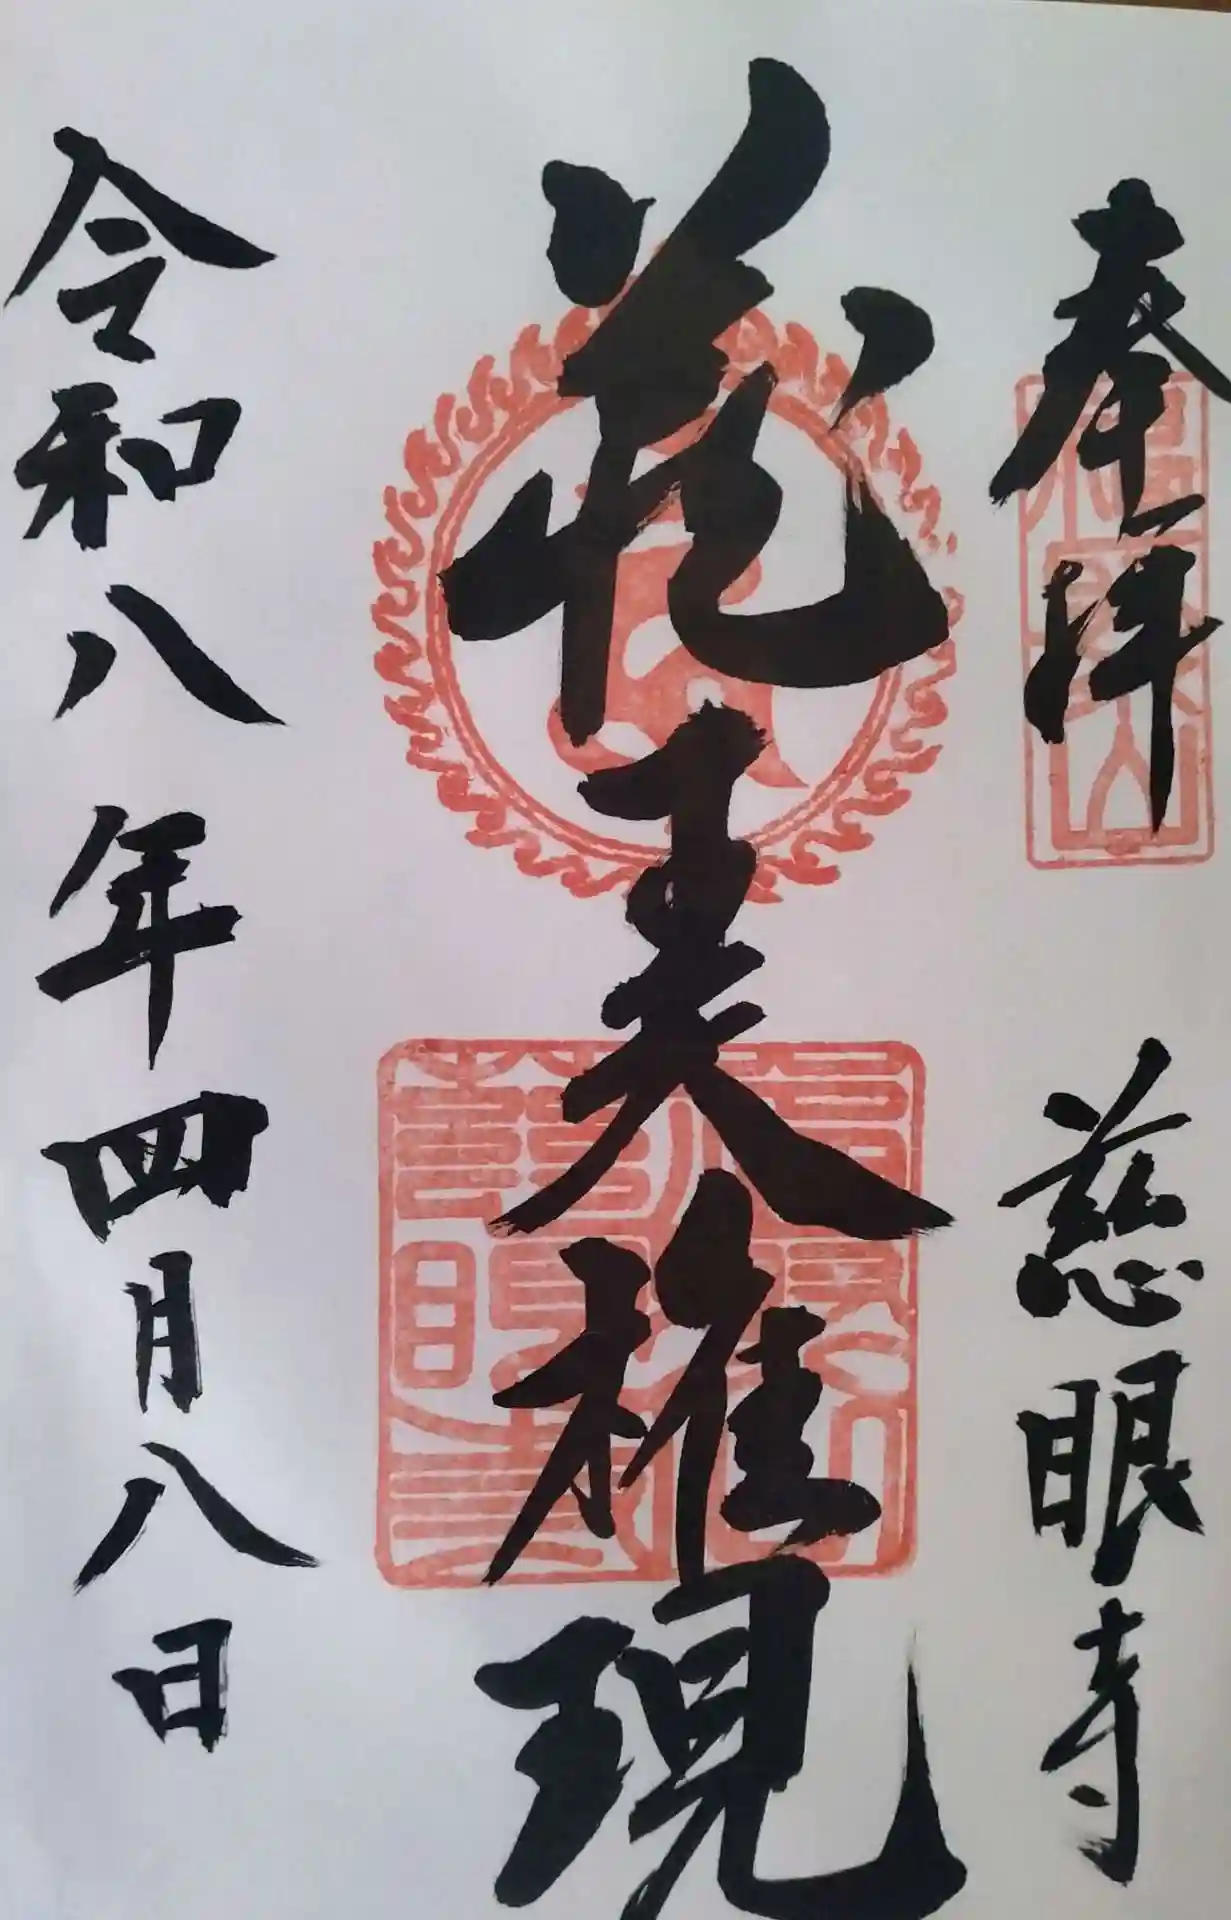 奉拝
慈眼寺
花美権現
令和八年四月八日